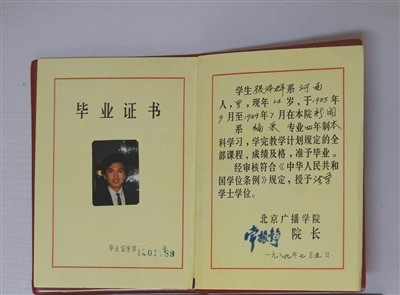 毕业证书
毕业证字第 号
学生张泽群系河南
人,男,现年24岁,于1985年
9月至1989年7月在本院新闻
系编采专业四年制本
科学习,学完教学计划规定的全
部课程,成绩及格,准予毕业。
经审核符合《中华人民共和
国学位条例》规定,授予
学士学位。
北京广播学院
院长
一九八九年七月五日